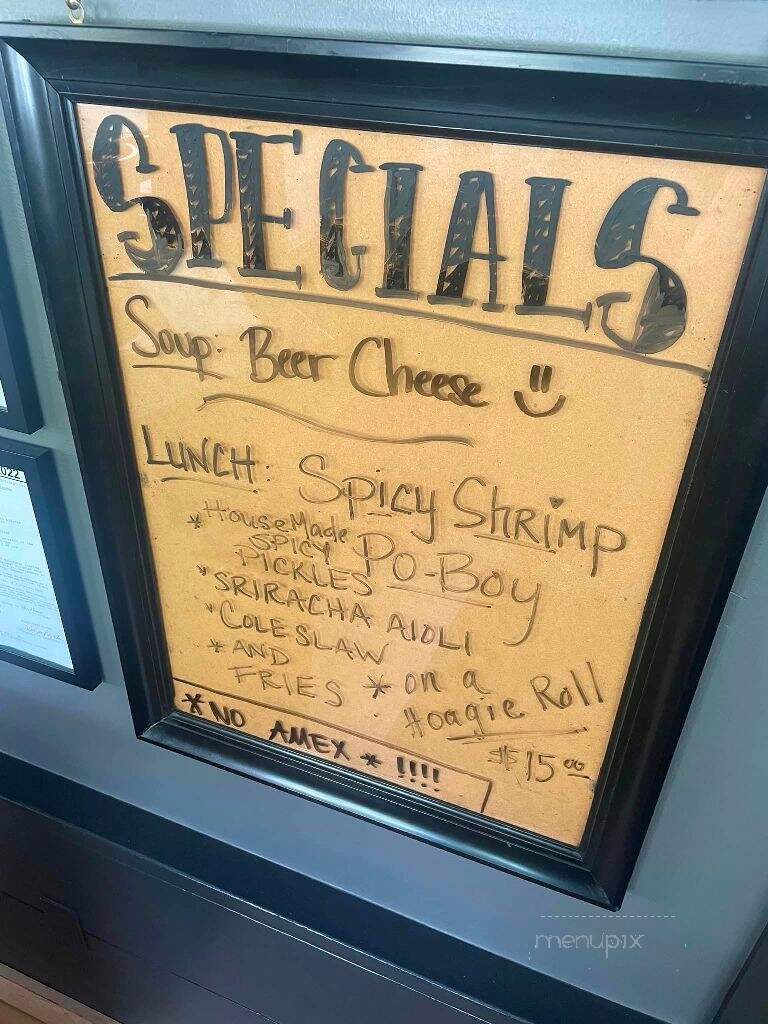 SPECIALS
Soup: Beer Cheese
LUNCH: Spicy Shrimp
Po-Boy
* House Made
SPICY
PICKLES
* SRIRACHA AIOLI
* COLESLAW
* AND
FRIES
* on a
Hoagie Roll
$15.00
*NO AMEX * !!!!
022
menupix